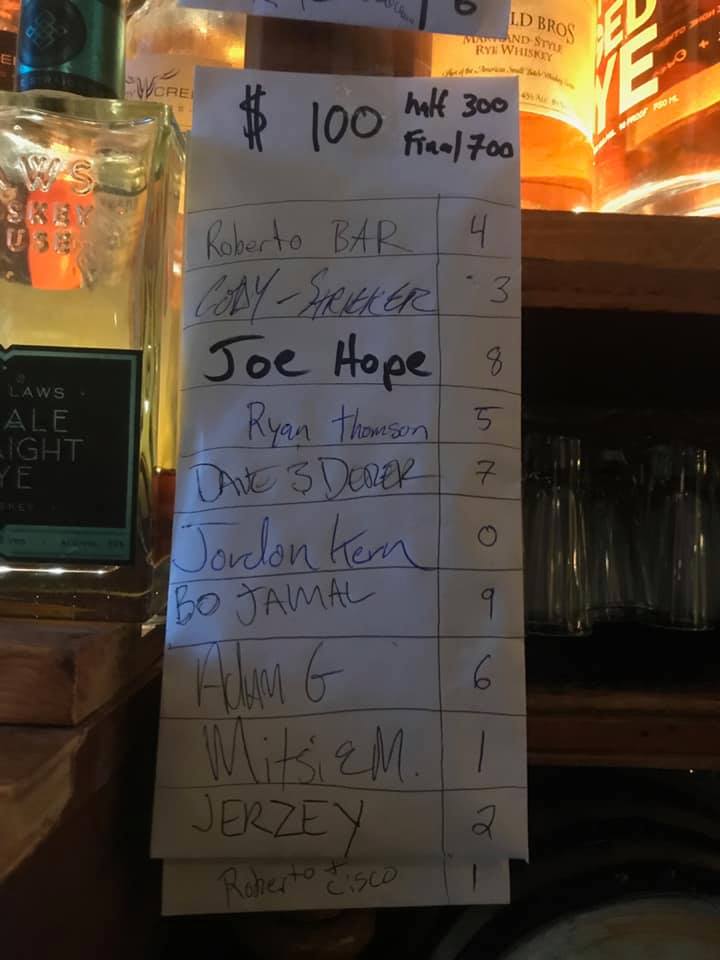 6
LD BROS
MARYLAND-STYLE
RYE WHISKEY
YE
CREE
AWS
SKEY
USE
LAWS
ALE
AIGHT
YE
$ 100 half 300
Final 700
Roberto BAR 4
CODY - STRIKER 3
Joe Hope 8
Ryan thomson 5
DAVE 3 DEDER 7
Jordon Kern 0
BO JAMAL 9
Adam G 6
Mitsi & M. 1
JERZEY 2
Roberto + Cisco 1